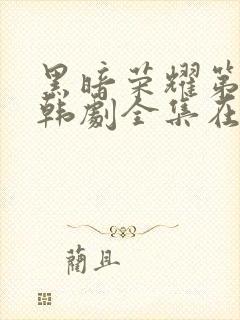 黑暗荣耀第
韩剧全集在
蔺且